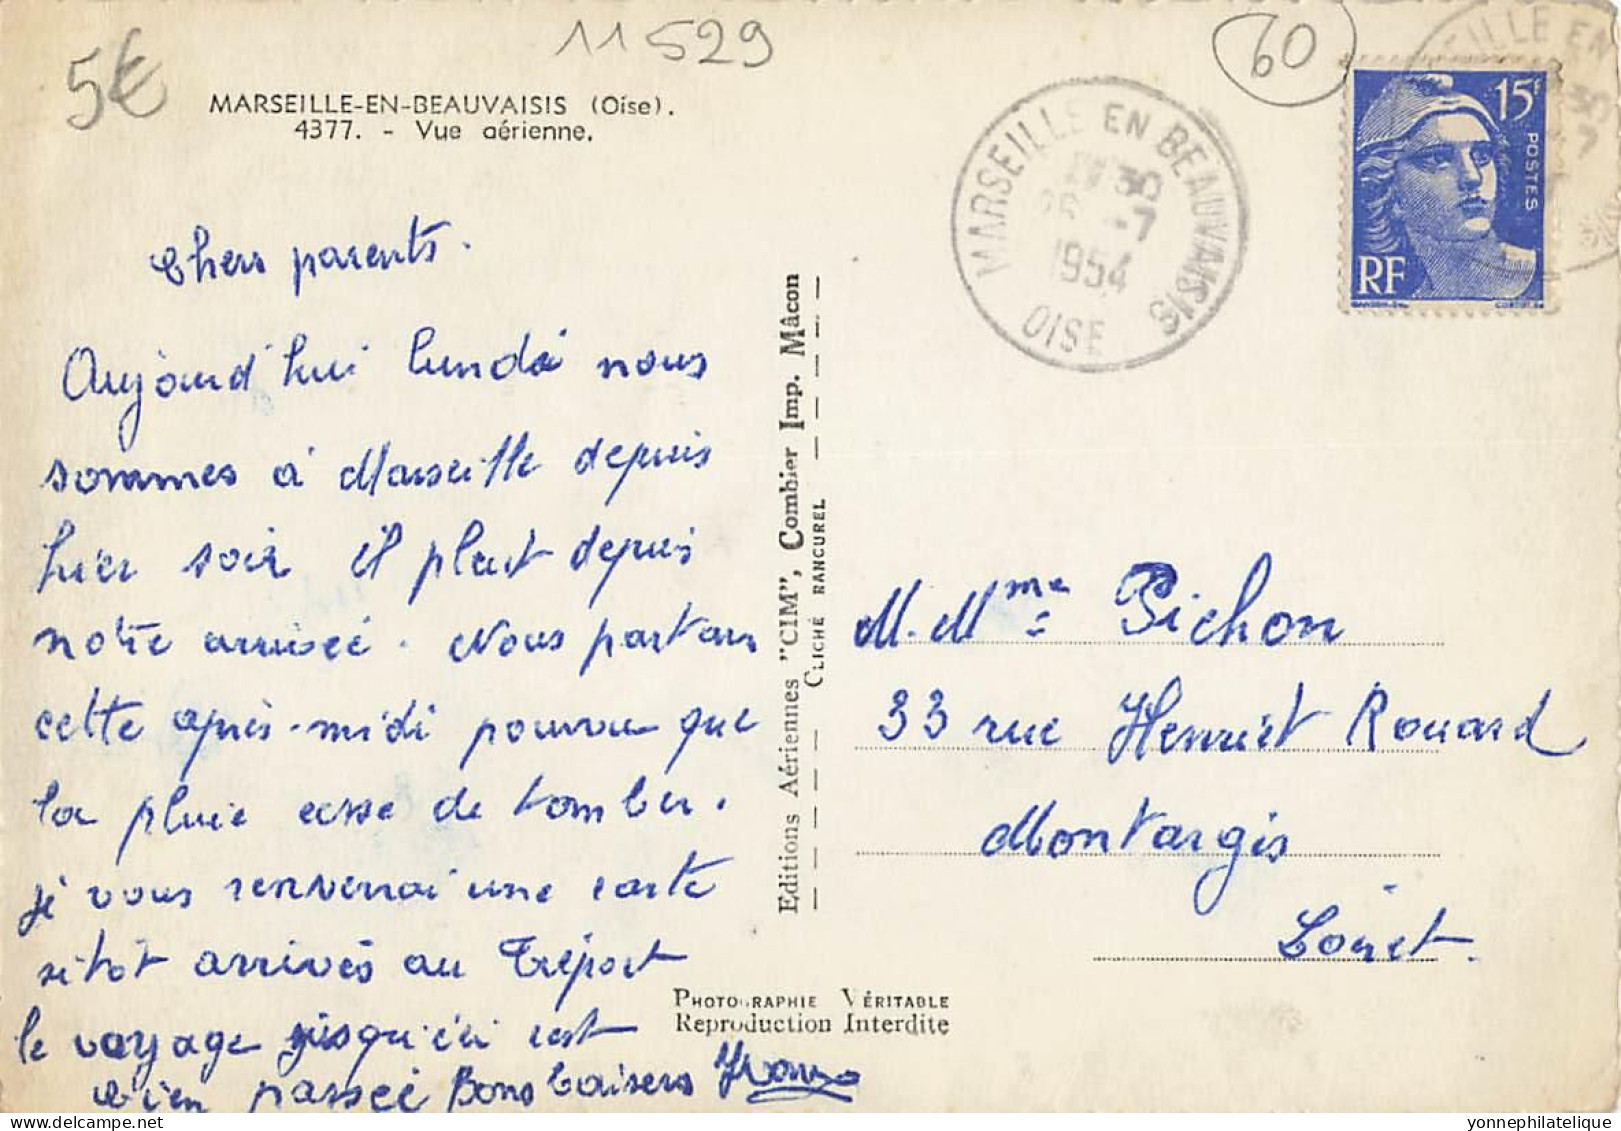 5€
11529
60
MARSEILLE-EN-BEAUVAISIS (Oise).
4377. - Vue aérienne.
Chers parents.
Aujourd'hui lundi nous
sommes à Marseille depuis
hier soir il pleut depuis
notre arrivéé. Nous partons
cette après-midi pourvu que
la pluie cesse de tomber.
je vous renverrai une carte
sitôt arrivés au Tréport
le voyage jusqu'ici est
bien passéé Bons baisers
Editions Aériennes "CIM", Combier Imp. Mâcon
CLICHÉ RANCUREL
PHOTOGRAPHIE VÉRITABLE
Reproduction Interdite
MARSEILLE EN BEAUVAISIS
30
-7
1954
OISE
15F
POSTES
RF
EILLE EN
30
7
M. Mme Pichon
33 rue Henriet Rouard
Montargis
Loiret.
yonnephilatelique